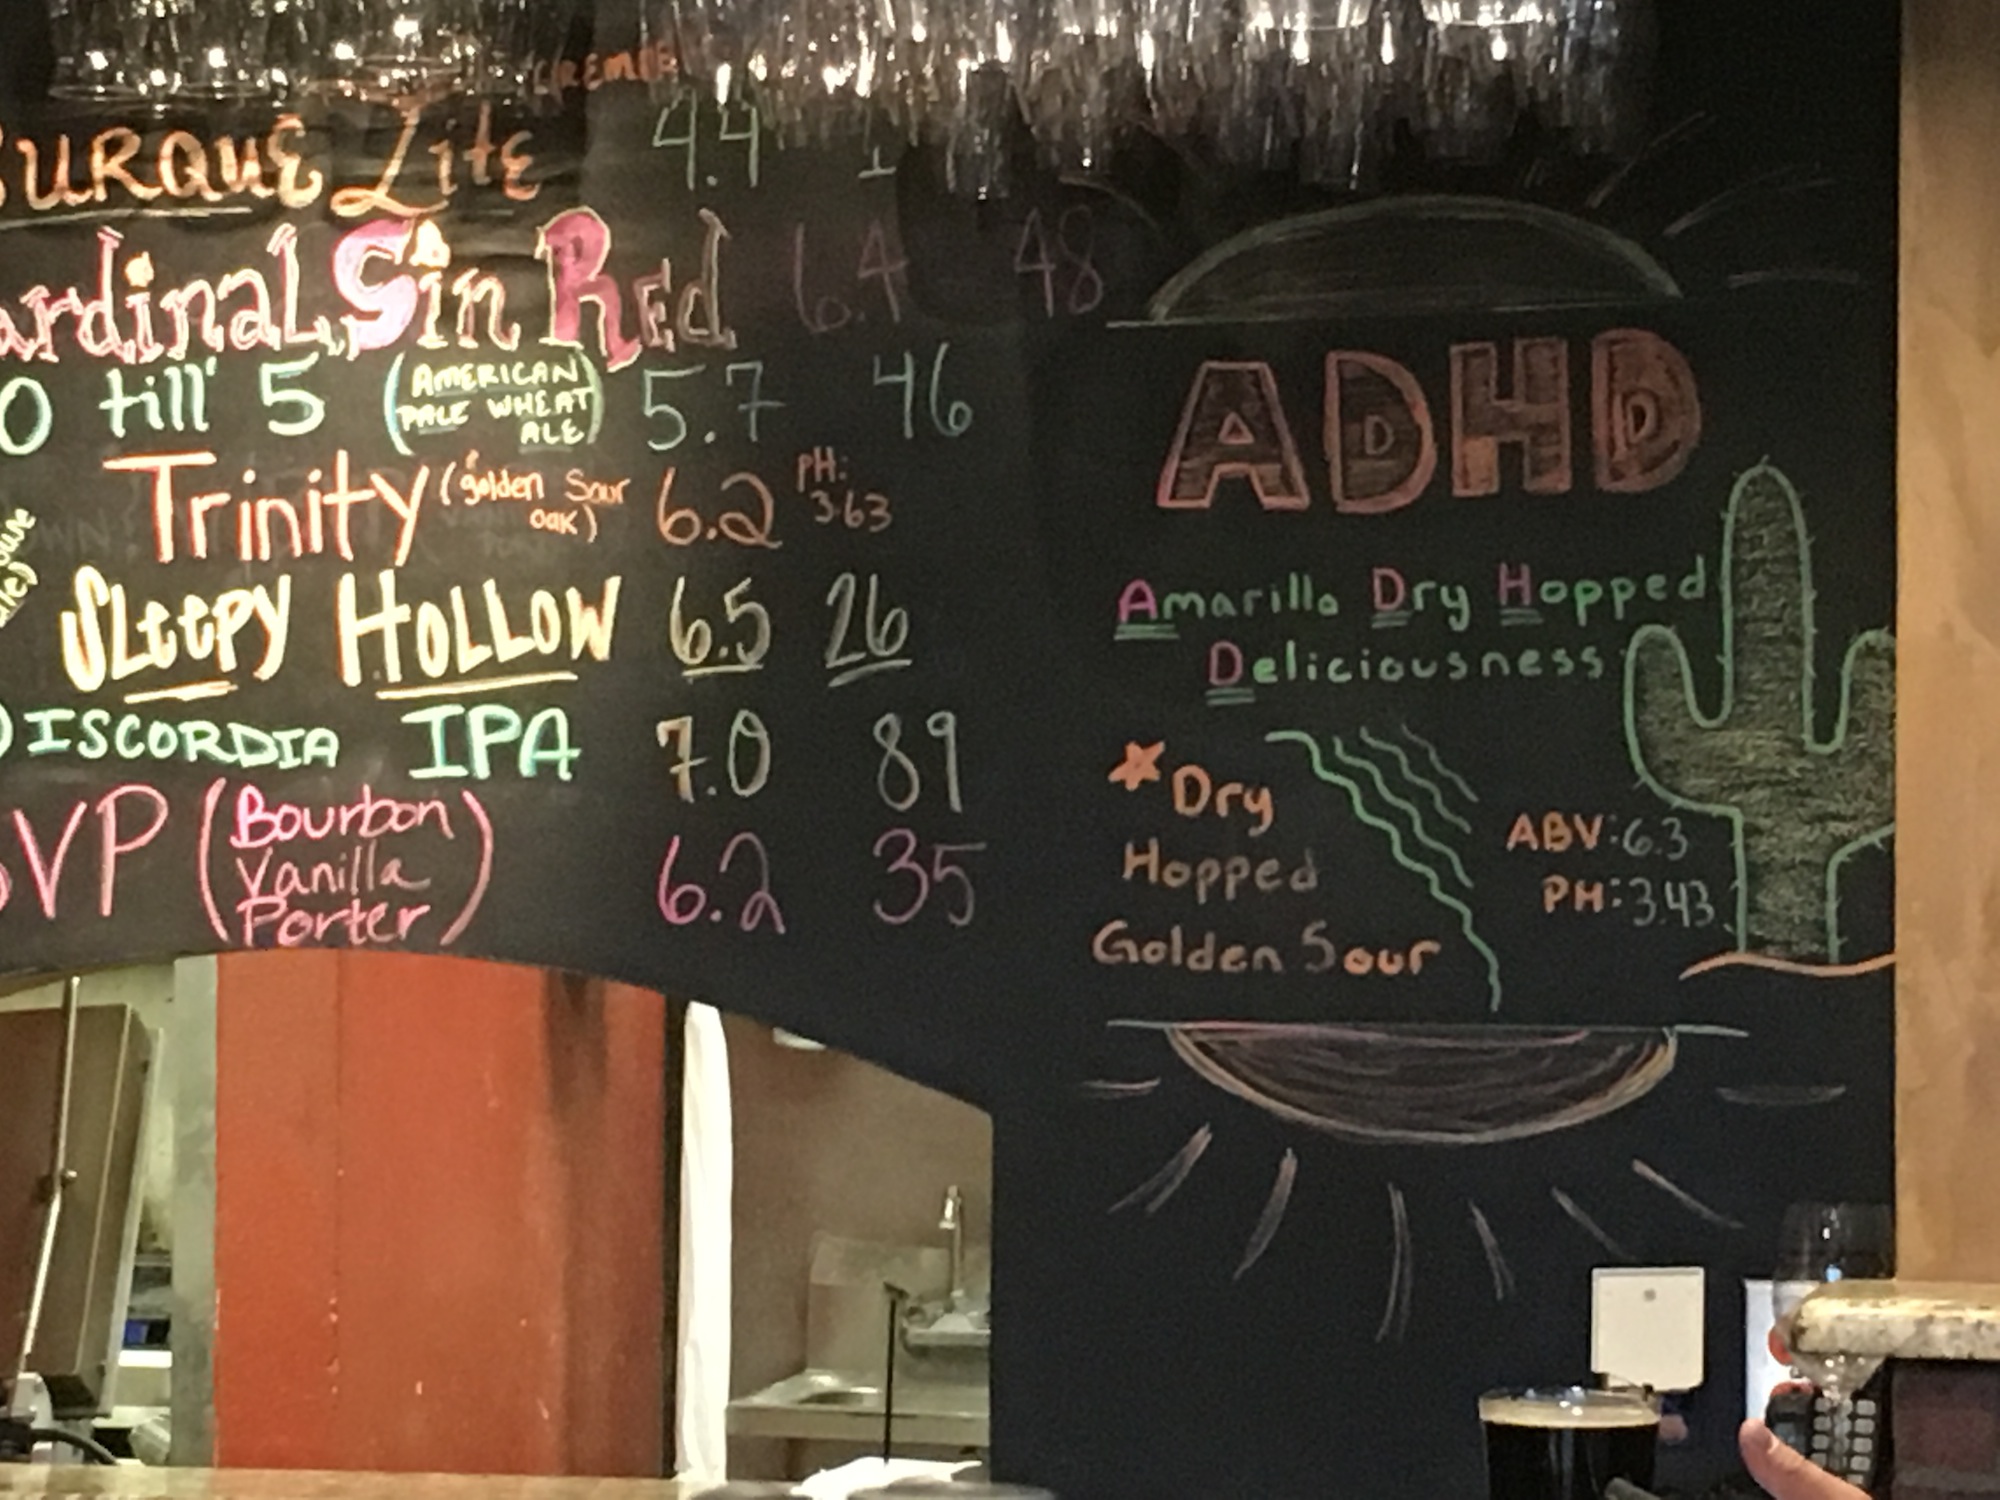 URQUE Lite 4.4
ardinal Sin Red 6.4 48
0 till' 5 (AMERICAN PALE WHEAT ALE) 5.7 46
Trinity (golden Sour oak) 6.2 PH: 3.63
SLeepy HOLLOW 6.5 26
DISCORDIA IPA 7.0 89
VP (Bourbon Vanilla Porter) 6.2 35
ADHD
Amarillo Dry Hopped
Deliciousness
Dry
Hopped
Golden Sour
ABV: 6.3
PH: 3.43